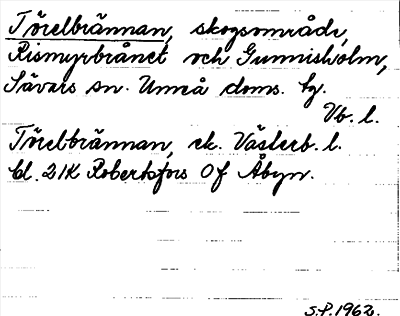 Törelbrännan, skogsområde,
Rismyrbrånet och Gunnisholm,
Sävars sn. Umeå doms. tg.
Vb. l.
Törelbrännan, ek. Västerb. l.
bl. 21K Robertsfors Of Åbyn.
S.P. 1962.